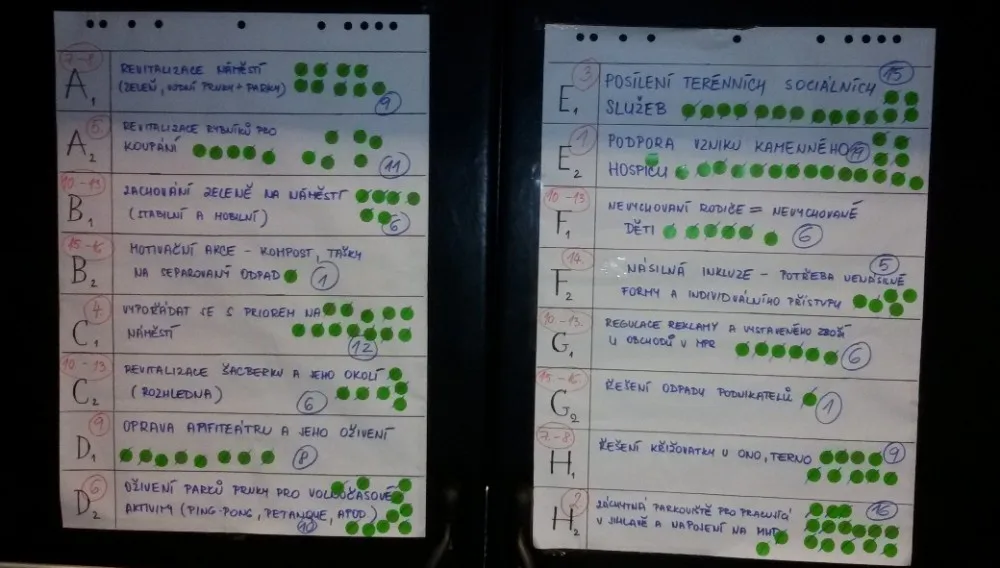 7.-8.
A1
REVITALIZACE NÁMĚSTÍ
(ZELEŇ, VODNÍ PRVKY + PARKY)
9
5
A2
REVITALIZACE RYBNÍKŮ PRO
KOUPÁNÍ
11
10.-13.
B1
ZACHOVÁNÍ ZELENĚ NA NÁMĚSTÍ
(STABILNÍ A MOBILNÍ)
6
15.-16.
B2
MOTIVAČNÍ AKCE - KOMPOST, TAŠKY
NA SEPAROVANÝ ODPAD
1
4
C1
VYPOŘÁDAT SE S PRIOREM NA
NÁMĚSTÍ
12
10.-13.
C2
REVITALIZACE ŠACBERKU A JEHO OKOLÍ
(ROZHLEDNA)
6
9
D1
OPRAVA AMFITEÁTRU A JEHO OŽIVENÍ
8
6
D2
OŽIVENÍ PARKŮ PRVKY PRO VOLNOČASOVÉ
AKTIVITY (PING-PONG, PETANQUE, APOD.)
10
3
E1
POSÍLENÍ TERÉNNÍCH SOCIÁLNÍCH
SLUŽEB
15
1
E2
PODPORA VZNIKU KAMENNÉHO
HOSPICU
10.-13
F1
NEVYCHOVANÍ RODIČE = NEVYCHOVANÉ
DĚTI
6
14.
F2
NÁSILNÁ INKLUZE - POTŘEBA NENÁSILNÉ
FORMY A INDIVIDUÁLNÍHO PŘÍSTUPU
5
10.-13.
G1
REGULACE REKLAMY A VYSTAVENÉHO ZBOŽÍ
U OBCHODŮ V MPR
6
15.-16.
G2
ŘEŠENÍ ODPADU PODNIKATELŮ
1
7.-8
H1
ŘEŠENÍ KŘIŽOVATKY U ONO, TERNO
9
2
H2
ZÁCHYTNÁ PARKOVIŠTĚ PRO PRACUJÍCÍ
V JIHLAVĚ A NAPOJENÍ NA MHD
16